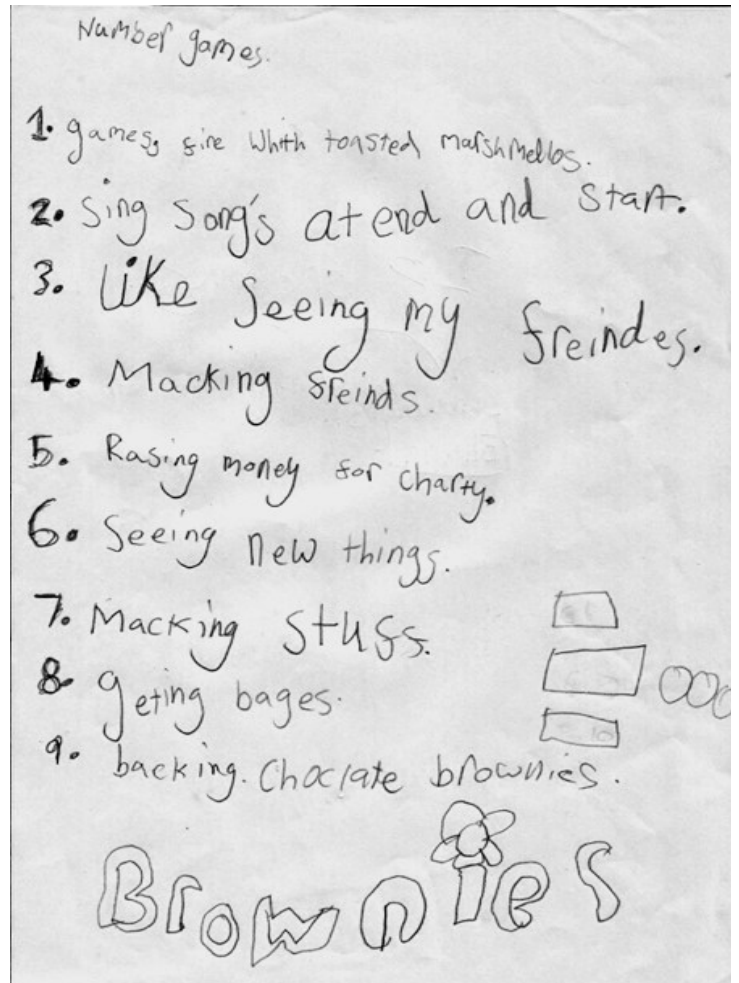 Number games.
1. games, fire Whith toasted marshmellos.
2. Sing Song's at end and start.
3. like seeing my freindes.
4. Macking freinds.
5. Rasing money for charty.
6. Seeing new things.
7. Macking stuff.
8. geting bages.
9. backing. Choclate brownies.
Brownies